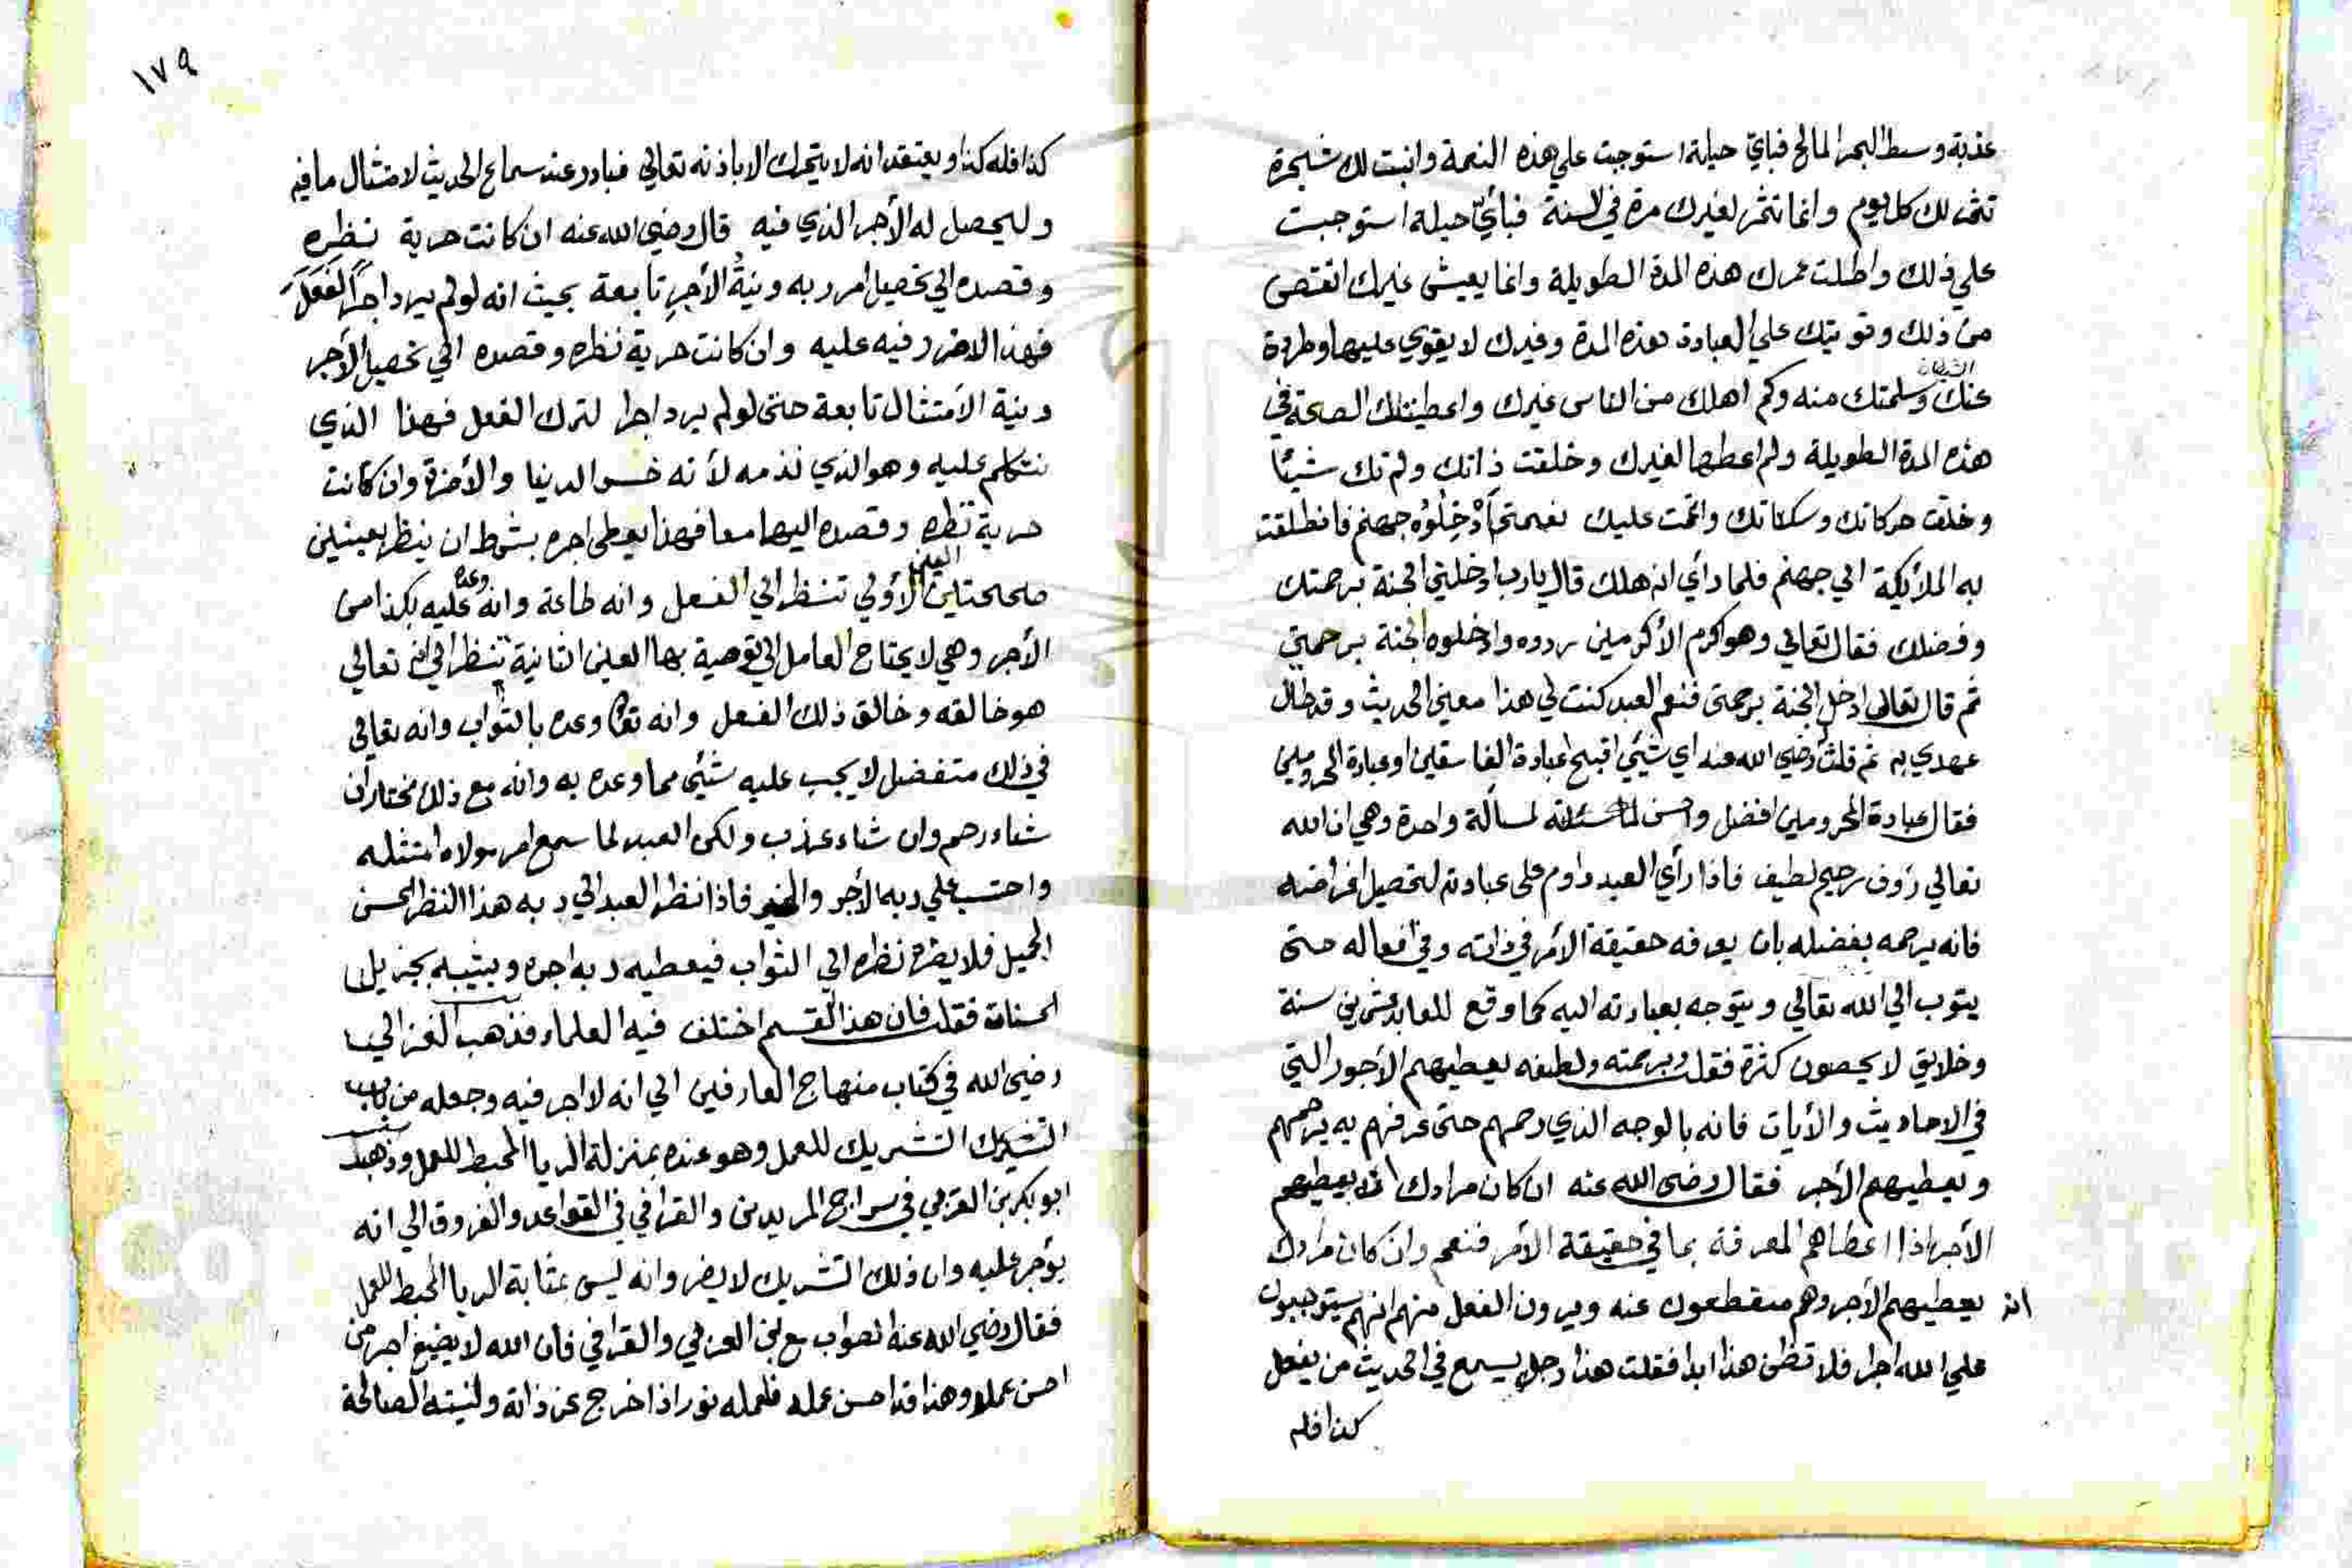 عذبة وسط البحر المالح فبأيّ حيلة استوجبت علي هذه النعمة وانبت لك شجرة
تثمر لك كل يوم وانما تثمر لغيرك مرة في السنة فبأيّ حيلة استوجبت
علي ذلك واطلت عمرك هذه المدة الطويلة وانما يعيش غيرك انقص
من ذلك وقويتك علي العبادة هذه المدة وغيرك لا يقوي عليها وطردة
الشيطان
عنك وسلمتك منه وكم اهلك من الناس غيرك واعطيتك الصحة في
هذه المدة الطويلة ولم اعطها لغيرك وخلقت ذاتك ولم تك شيأ
وخلقت حركاتك وسكناتك واتممت عليك نعمتي أدْخِلُوْه جهنم فانطلقت
به الملأيكة الي جهنم فلما رأي انه هلك قال يا رب ادخلني الجنة برحمتك
وفضلك فقال تعالي وهو اكرم الأكرمين ردوه وادخلوه الجنة برحمتي
ثم قال تعالي ادخل الجنة برحمتي فنعم العبد كنت لي هذا معني الحديث وقد طال
عهدي به ثم قلت رضي الله عنه اي شيئي اقبح عبادة الفاسقين او عبادة المحرومين
فقال عبادة المحرومين افضل واحسن لمسألة واحدة وهي ان الله
تعالي رؤف رحيم لطيف فاذا رأي العبد داوم علي عبادته لتحصيل اغراضه
فانه يرحمه بفضله بان يعرفه حقيقة الأمر في ذاته وفي افعاله حتى
يتوب الي الله تعالي ويتوجه بعبادته اليه كما وقع للعابد عشرين سنة
وخلايق لا يحصون كثرة فقلت وبرحمته ولطفه يعطيهم الأجور التي
في الاحاديث والأيات فانه بالوجه الذي رحمهم حتى عرفهم به يرحمهم
ويعطيهم الأجر فقال رضى الله عنه ان كان مرادك انه يعطيهم
الأجر اذا اعطاهم المعرفة بما في حقيقة الأمر فنعم وان كان مرادك
انه يعطيهم الأجر وهم منقطعون عنه ويرون الفعل منهم انهم يستوجبون
علي الله اجرا فلا تظن هذا ابدا فقلت هذا رجل يسمع في الحديث من يفعل
كذا فله
١٧٩
كذا فله كذا ويعتقد انه لا يتحرك الا باذنه تعالي فبادر عند سماع الحديث لامتثال ما فيه
وليحصل له الأجر الذي فيه قال رضي الله عنه ان كانت حربة نظره
وقصده الي تحصيل امر ربه ونيةُ الأجرِ تابعة بحيث انه لو لم يرد اجرًا لفَعَلَ
فهذا لا ضرر فيه عليه وان كانت حربة نظره وقصده الي تحصيل الأجر
ونية الأمتثال تابعة حتى لو لم يرد اجرا لترك الفعل فهذا الذي
نتكلم عليه وهو الذي نذمه لأنه خسر الدنيا والأخرة وان كانت
حربة نظره وقصده اليهما معا فهذا يعطى اجره بشرط ان ينظر بعينين
صحيحتين العين الأولي تنظر الي الفعل وانه طاعة وانه وعد عليه بكذا من
الأجر وهي لا يحتاج العامل الي توصية بها العين الثانية تنظر الي انه تعالي
هو خالقه وخالق ذلك الفعل وانه تعا وعده بالثواب وانه تعالي
في ذلك متفضل لا يجب عليه شيئي مما وعده به وانه مع ذلك مختار ان
شاء رحم وان شاء عذب ولكن العبد لما سمع امر مولاه امتثله
واحتسب علي ربه الأجر والخير فاذا نظر العبد الي ربه هذا النظر الحسن
الجميل فلا يضره نظره الي الثواب فيعطيه ربه اجره ويثيبه بجزيل
الحسنات فقلت فان هذا القسم اختلف فيه العلماء فذهب الغزالي
رضي الله في كتاب منهاج العارفين الي انه لا اجر فيه وجعله من باب
التشريك للعمل وهو عنده بمنزلة الريا المحبط للعمل وذهب
ابو بكر بن العربي في سراج المريدين والقرافي في القواعد والفروق الي انه
يؤجر عليه وان ذلك التشريك لا يضر وانه ليس بمثابة الريا المحبط للعمل
فقال رضي الله عنه الصواب مع بن العربي والقرافي فان الله لا يضيع اجر من
احسن عملا وهذا قد احسن عمله فلعمله نور اذا خرج عن ذاته ولنيته الصالحة